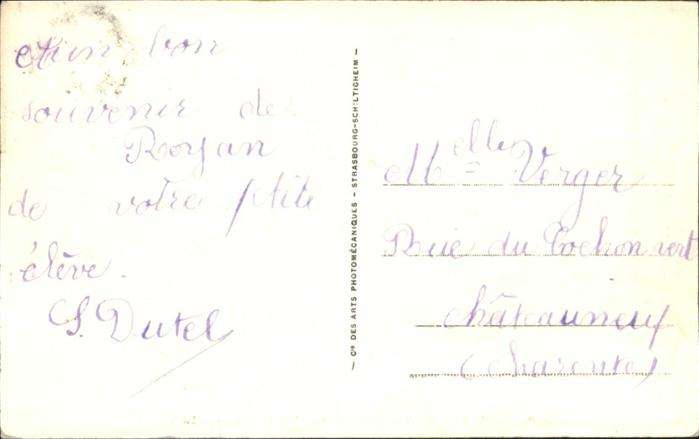 Un bon
souvenir de
Royan
de votre ptite
élève.
S. Dutel
— Cie DES ARTS PHOTOMÉCANIQUES - STRASBOURG-SCHILTIGHEIM —
Melle Verger
Rue du Cochon vert
Châteauneuf
(Charente)